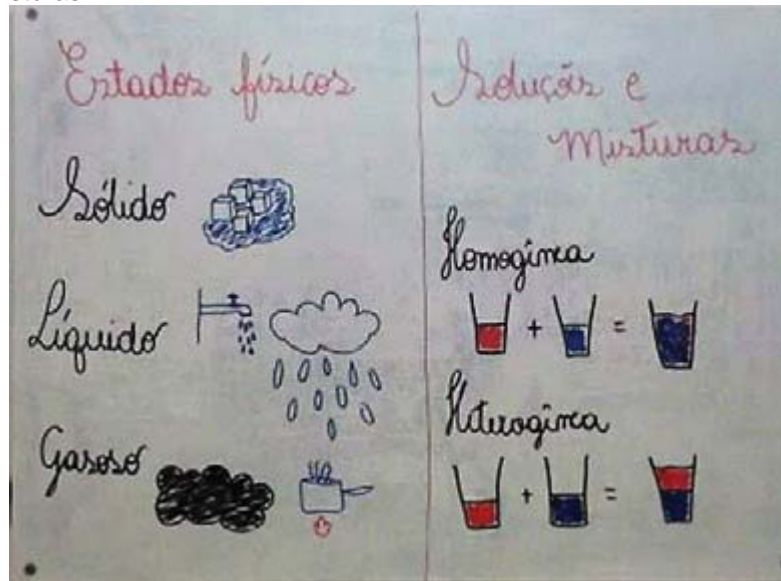 Estados físicos
Sólido
Líquido
Gasoso
Soluções e
Misturas
Homogênea
+ =
Heterogênea
+ =